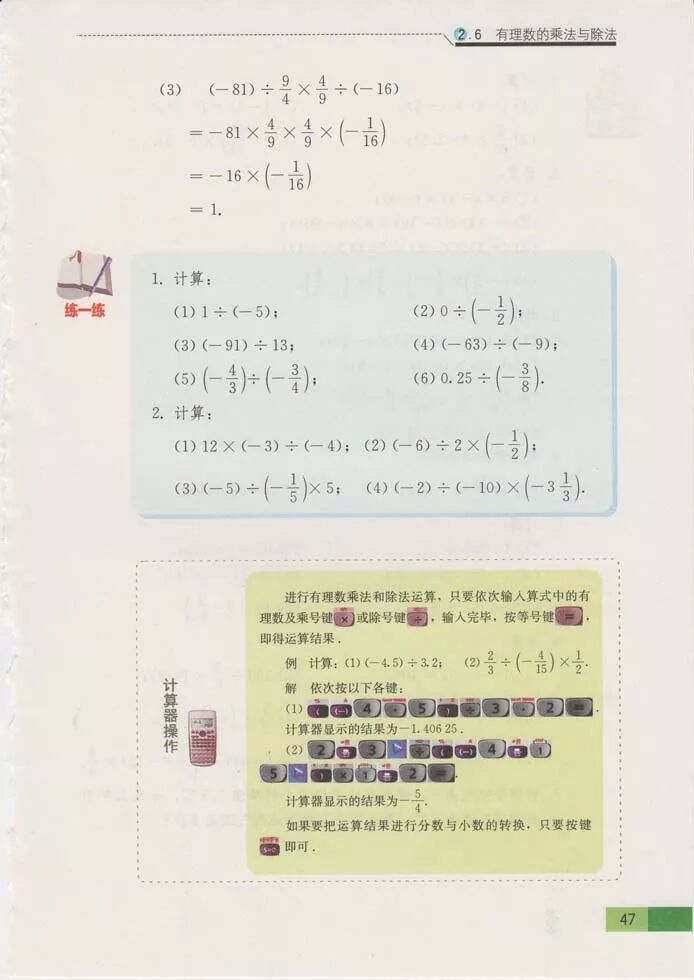 2.6 有理数的乘法与除法
(3) (-81)÷9/4×4/9÷(-16)
=-81×4/9×4/9×(-1/16)
=-16×(-1/16)
=1.
练一练
1. 计算:
(1)1÷(-5); (2)0÷(-1/2);
(3)(-91)÷13; (4)(-63)÷(-9);
(5)(-4/3)÷(-3/4); (6)0.25÷(-3/8).
2. 计算:
(1)12×(-3)÷(-4); (2)(-6)÷2×(-1/2);
(3)(-5)÷(-1/5)×5; (4)(-2)÷(-10)×(-3 1/3).
计算器操作
进行有理数乘法和除法运算,只要依次输入算式中的有
理数及乘号键×或除号键÷,输入完毕,按等号键=,
即得运算结果.
例 计算:(1)(-4.5)÷3.2; (2)2/3÷(-4/15)×1/2.
解 依次按以下各键:
(1) ( (-) 4 · 5 ) ÷ 3 · 2 = .
计算器显示的结果为-1.406 25.
(2) 2 3 ÷ ( (-) 4 1
5 ) × 1 2 = .
计算器显示的结果为-5/4.
如果要把运算结果进行分数与小数的转换,只要按键
S⇔D 即可.
47